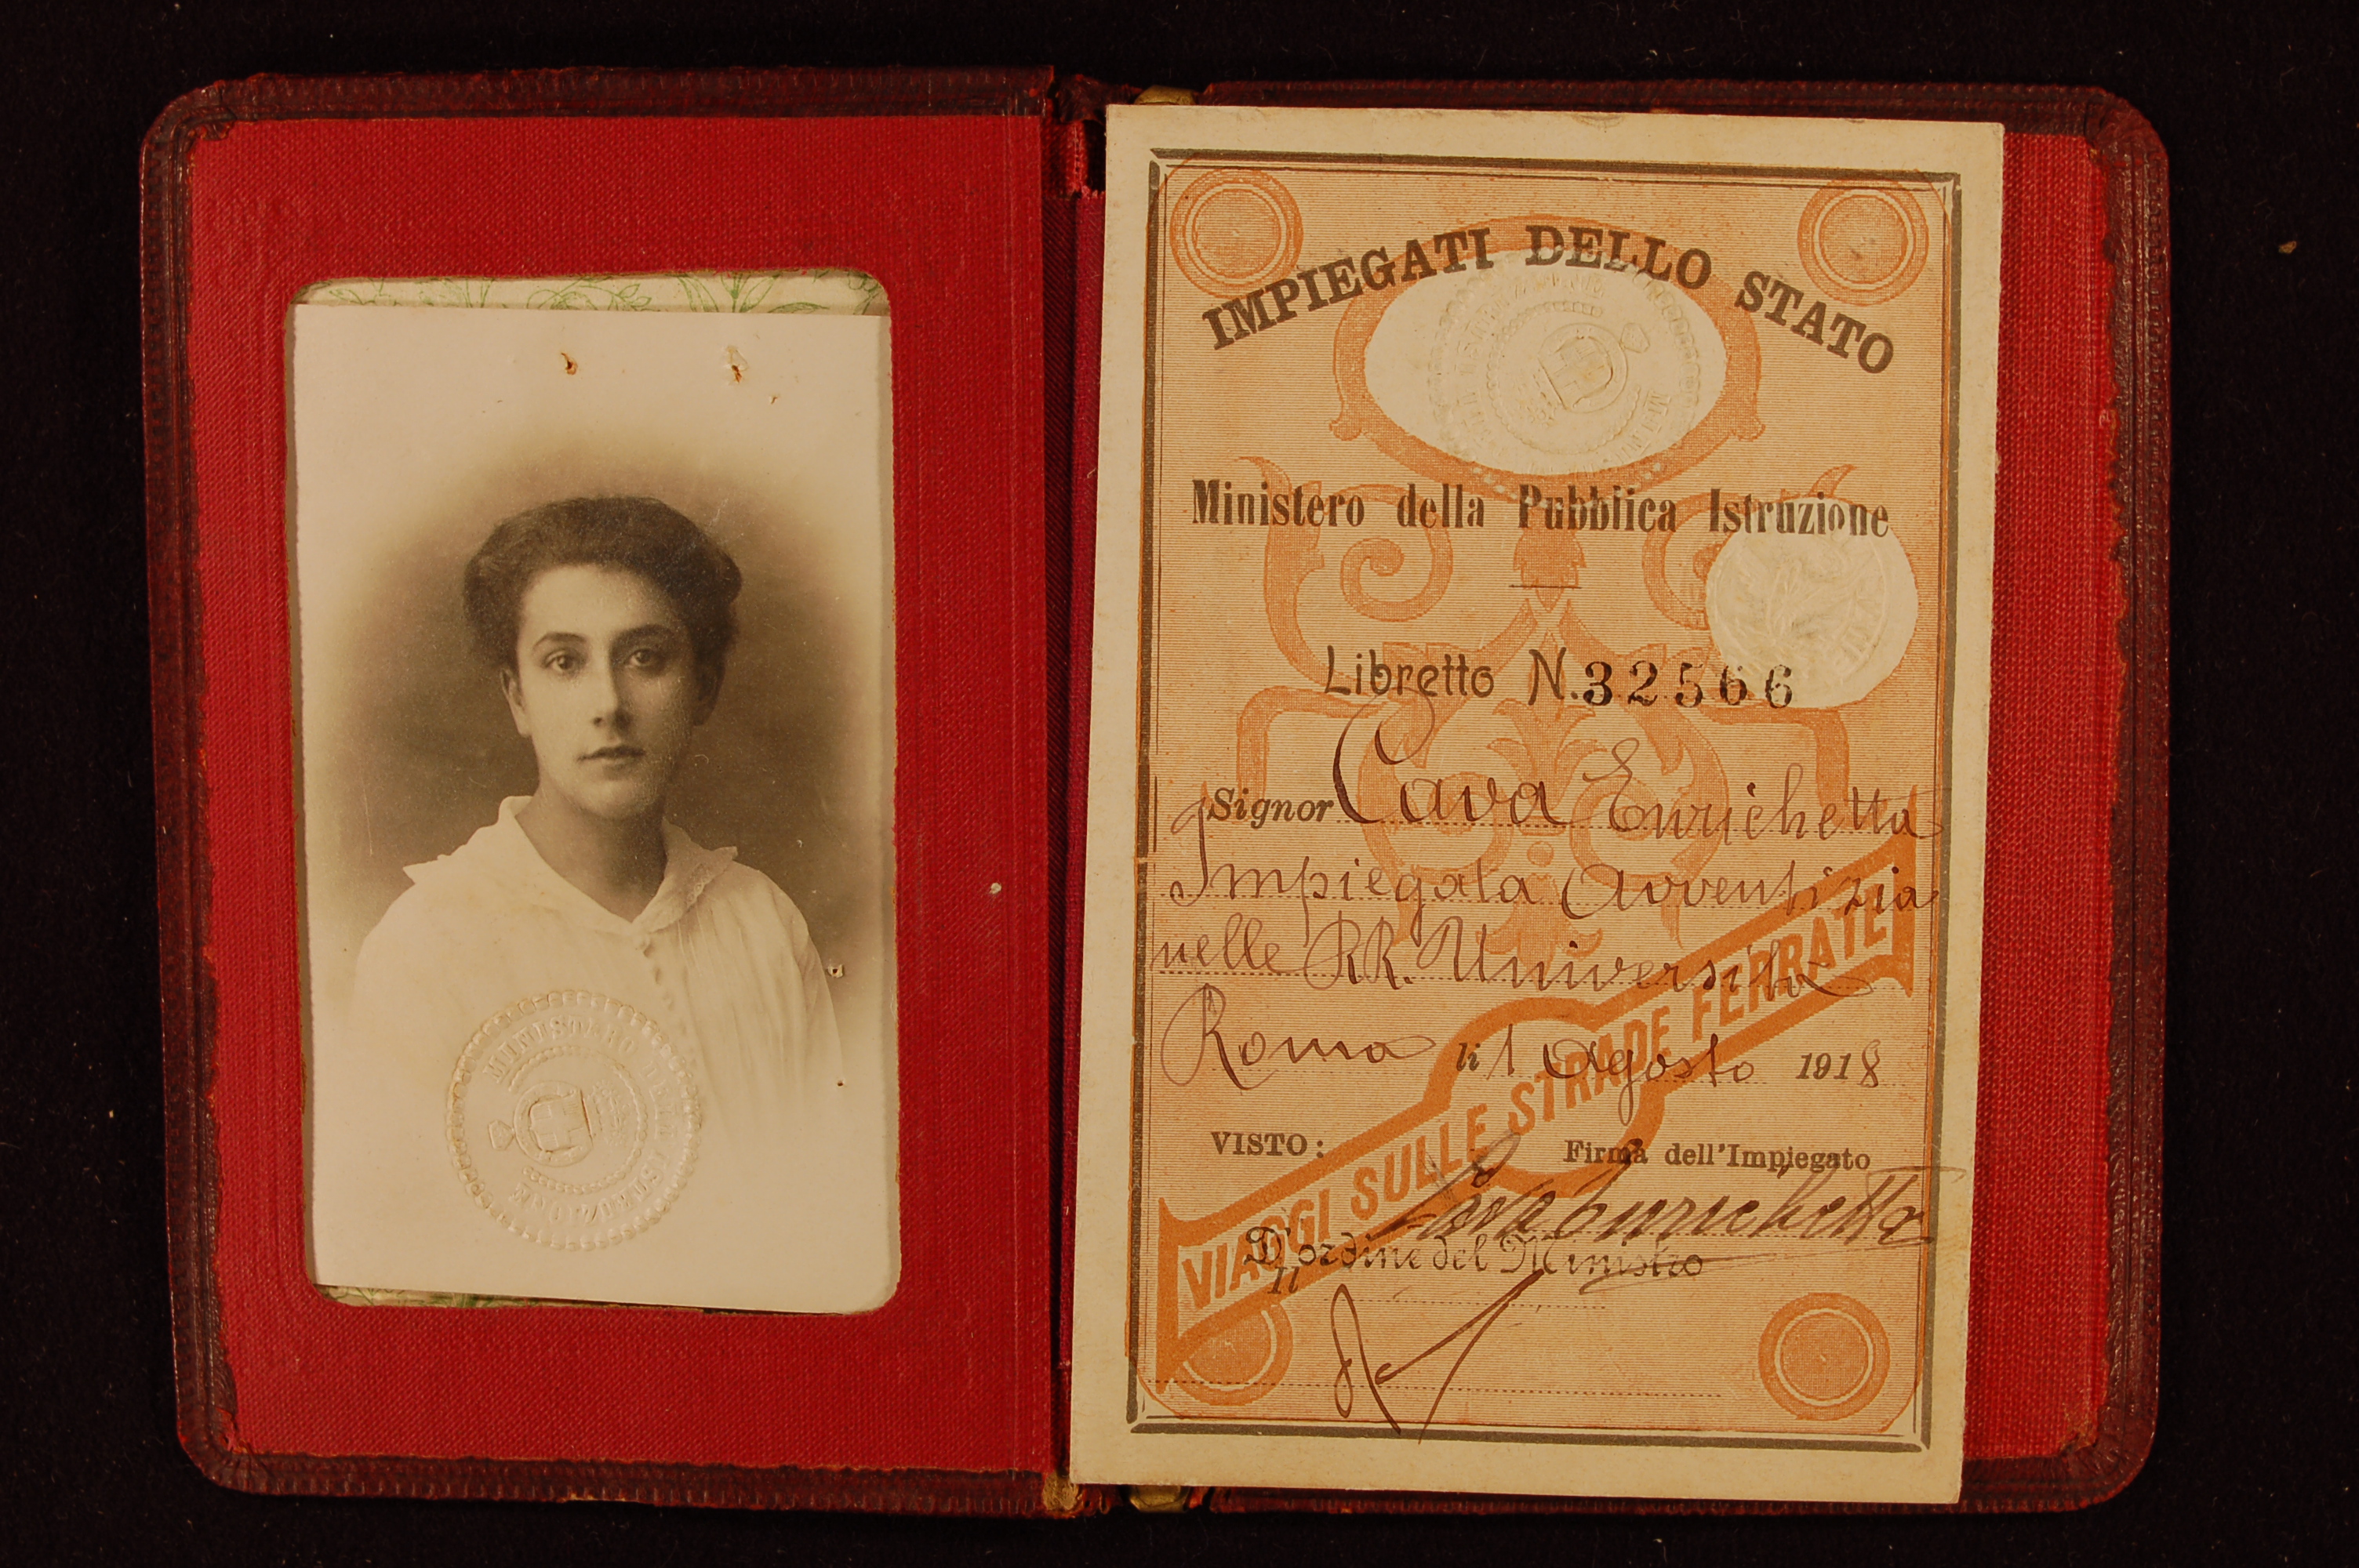 MINISTERO DELLA ISTRUZIONE
IMPIEGATI DELLO STATO
Ministero della Pubblica Istruzione
Libretto N. 32566
Signor Cava Enrichetta
Impiegata Avventizia
nelle RR. Università
Roma li 1 Agosto 1918
VIAGGI SULLE STRADE FERRATE
VISTO: Firma dell'Impiegato
Cava Enrichetta
D'ordine del Ministro
Il